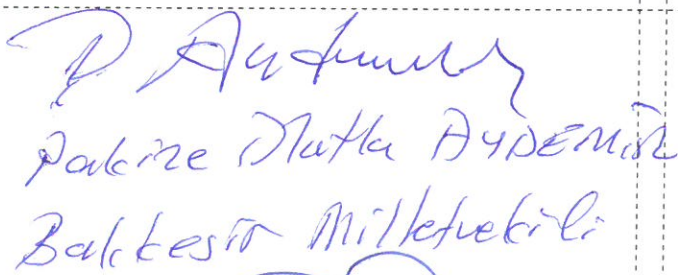 P Aydemir
Pakize Mutlu AYDEMİR
Balıkesir Milletvekili